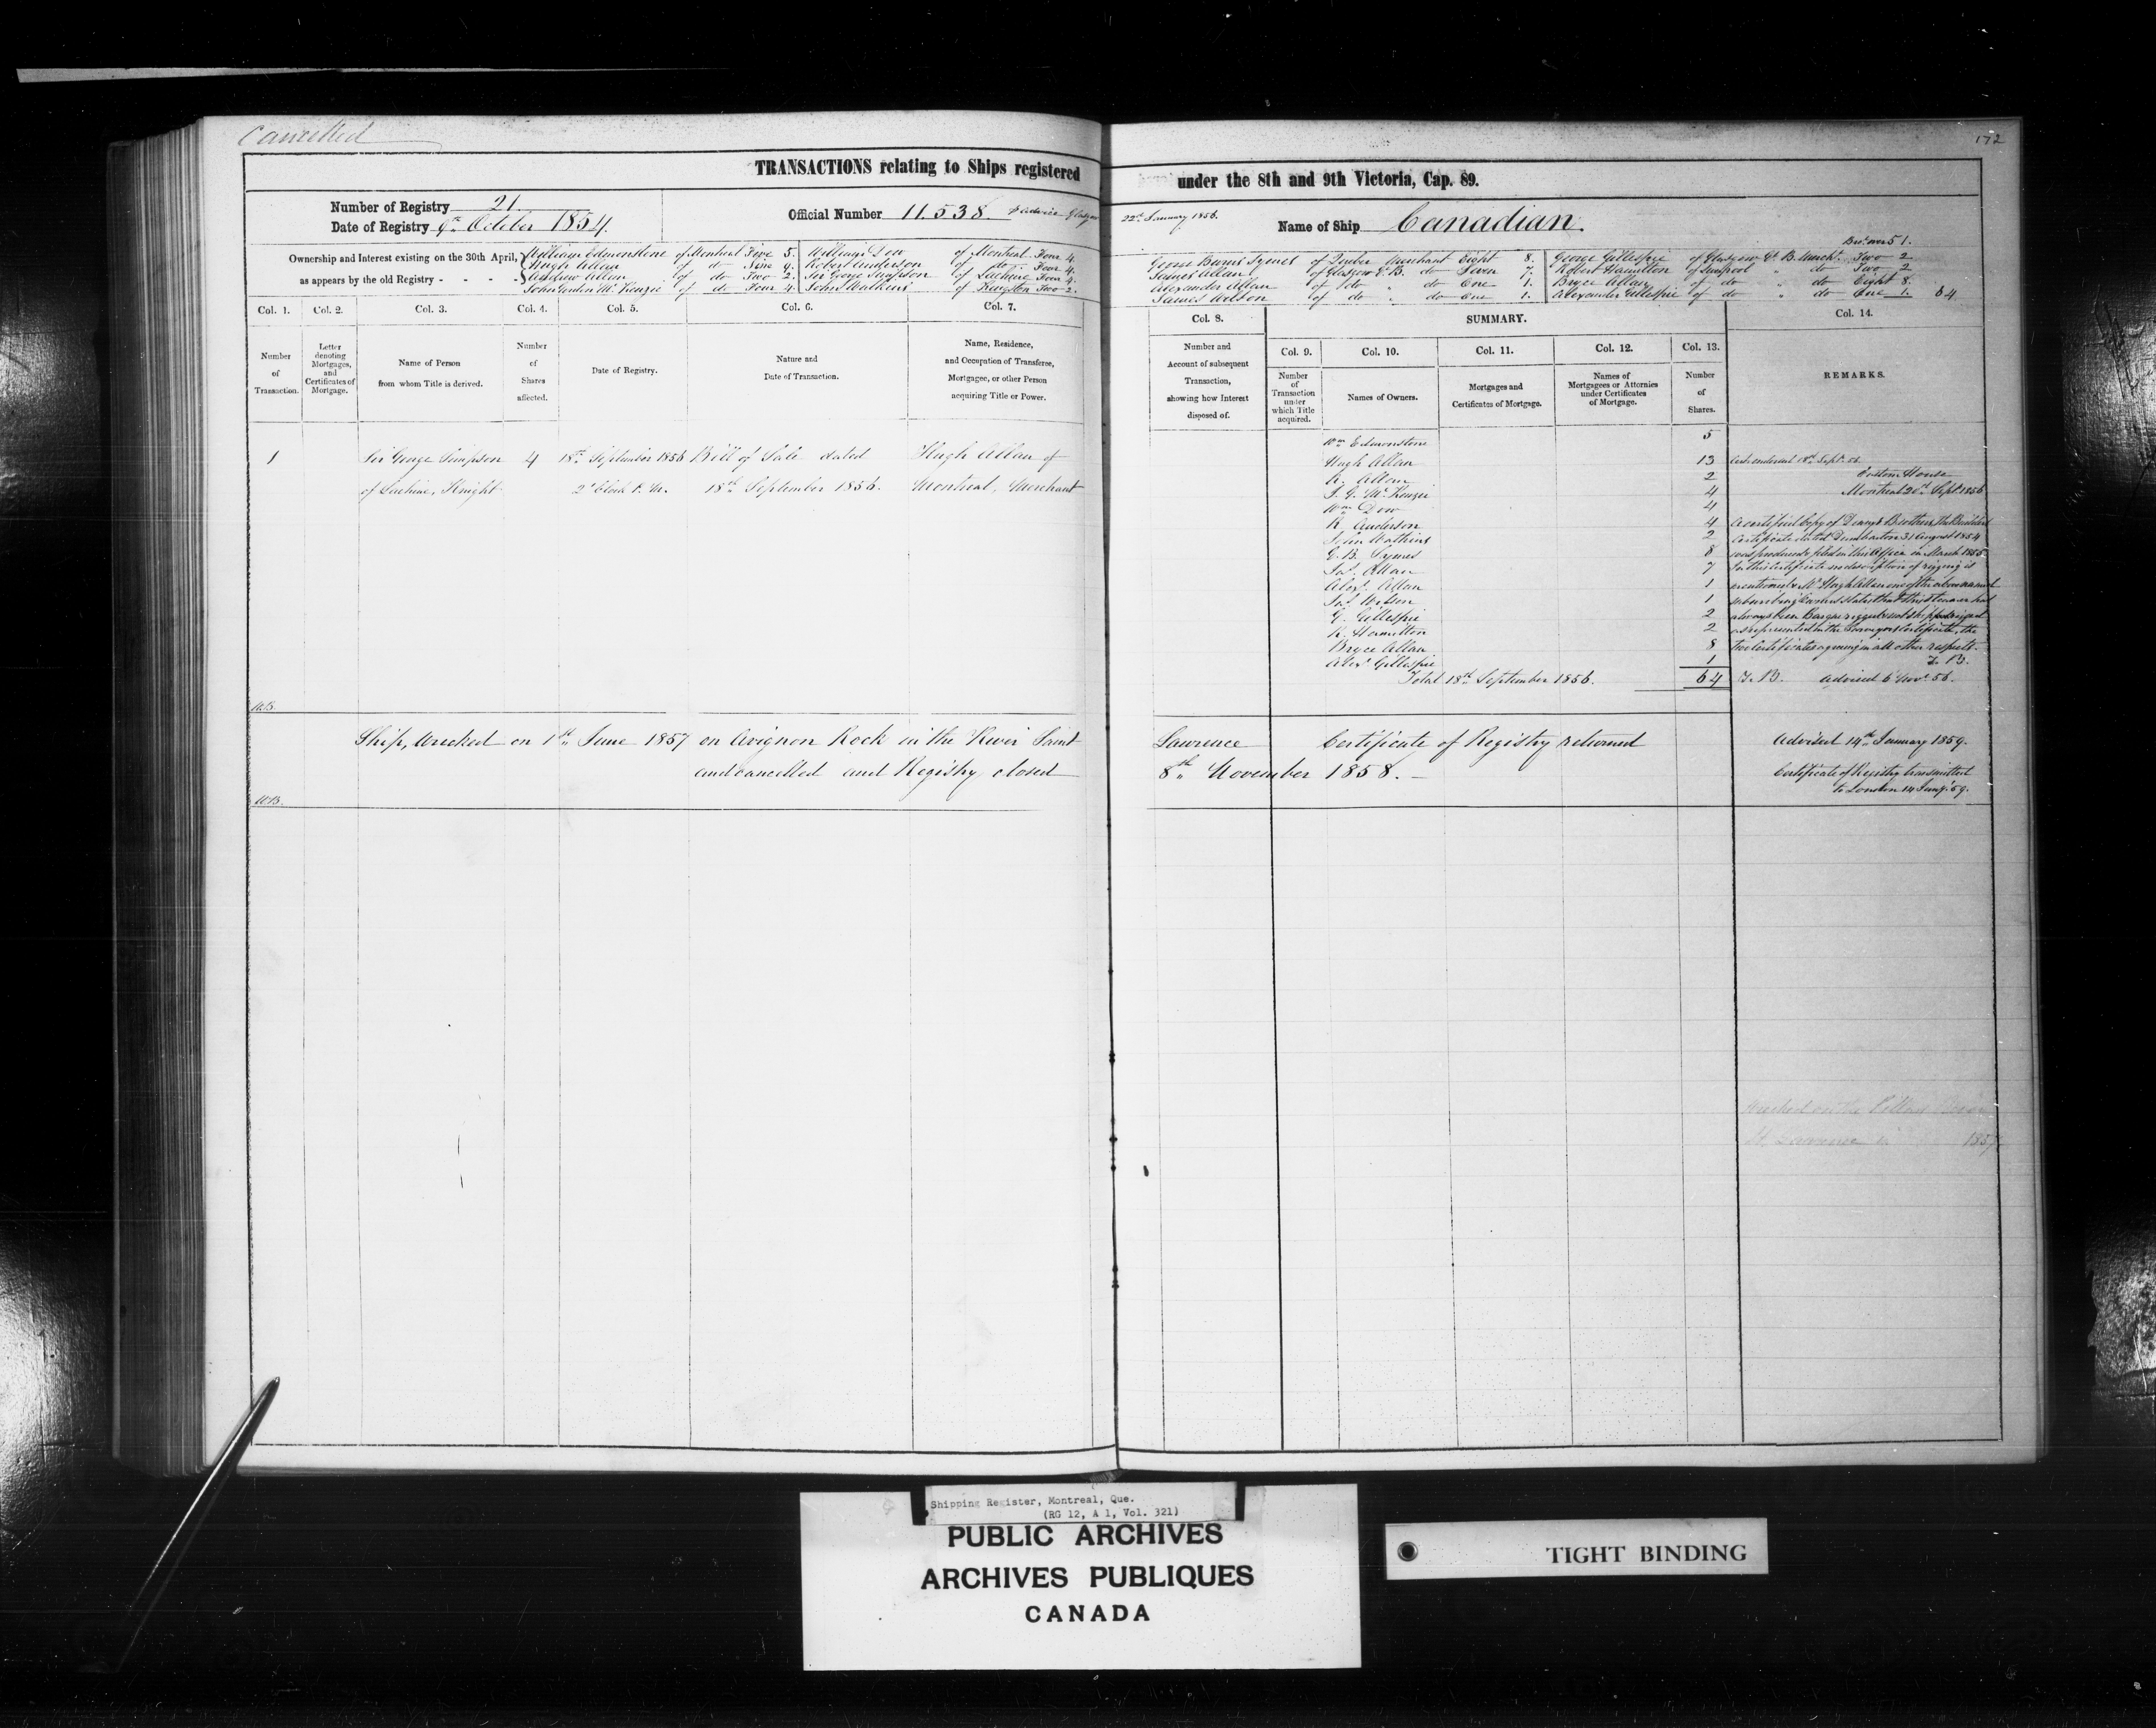 Cancelled
172
TRANSACTIONS relating to Ships registered under the 8th and 9th Victoria, Cap. 89.
Number of Registry 21.
Date of Registry 9th October 1854.
Official Number 11.538. p advice Glasgow 22d January 1856.
Name of Ship Canadian.
Ownership and Interest existing on the 30th April,
as appears by the old Registry - - - -
William Edmonstone of Montreal Five 5.
Hugh Allan of do Nine 9.
Andrew Allan of do Two 2.
John Gordon McKenzie of do Four 4.
William Dow of Montreal Four 4.
Robert Anderson of do Four 4.
Sir George Simpson of Lachine Four 4.
John Watkins of Kingston Two 2.
George Burns Symes of Quebec Merchant Eight 8.
James Allan of Glasgow G.B. do Seven 7.
Alexander Allan of do " do One 1.
James Wilson of do " do One 1.
Brt. over 51.
George Gillespie of Glasgow Gt. B. Mercht. Two 2
Robert Hamilton of Liverpool " do Two 2
Bryce Allan of do " do Eight 8.
Alexander Gillespie of do " do One 1. 64
Col. 1. Col. 2. Col. 3. Col. 4. Col. 5. Col. 6. Col. 7.
Number
of
Transaction.
Letter
denoting
Mortgages,
and
Certificates of
Mortgage.
Name of Person
from whom Title is derived.
Number
of
Shares
affected.
Date of Registry.
Nature and
Date of Transaction.
Name, Residence,
and Occupation of Transferee,
Mortgagee, or other Person
acquiring Title or Power.
Col. 8.
Number and
Account of subsequent
Transaction,
showing how Interest
disposed of.
SUMMARY.
Col. 9. Col. 10. Col. 11. Col. 12. Col. 13.
Number
of
Transaction
under
which Title
acquired.
Names of Owners.
Mortgages and
Certificates of Mortgage.
Names of
Mortgagees or Attornies
under Certificates
of Mortgage.
Number
of
Shares.
Col. 14.
REMARKS.
1 Sir George Simpson 4 18th September 1856 Bill of Sale dated Hugh Allan of
of Lachine, Knight 2 o'Clock P.M. 18th September 1856. Montreal, Merchant
Wm Edmonstone 5
Hugh Allan 13
A. Allan 2
J. G. McKenzie 4
Wm Dow 4
R. Anderson 4
John Watkins 2
G. B. Symes 8
Jas. Allan 7
Alexr. Allan 1
Jas. Wilson 1
G. Gillespie 2
R. Hamilton 2
Bryce Allan 8
Alexr. Gillespie 1
Total 18th September 1856. 64
Custom House
Montreal 20th Septr 1856
A certified Copy of Denny & Brothers the Builders
Certificate dated Dumbarton 31 August 1854
was produced & filed in this Office in March 1855.
In this Certificate no description of rigging is
mentioned & Mr Hugh Allan one of the above named
subscribing Owners states that this Steamer had
always been Barque rigged & not ship rigged
as represented in the Surveyors Certificate, the
two Certificates agreeing in all other respects.
T. B.
T. B. Advised 6 Novr. 56.
W.B.
Ship, wrecked on 1st June 1857 on Avignon Rock in the River Saint Lawrence Certificate of Registry returned
and cancelled and Registry closed 8th November 1858. -
Advised 14th January 1859.
Certificate of Registry transmitted
to London 14 Jany. 59.
W.B.
Wrecked on the
St. Lawrence in 1857
Shipping Register, Montreal, Que.
(RG 12, A 1, Vol. 321)
PUBLIC ARCHIVES
ARCHIVES PUBLIQUES
CANADA
TIGHT BINDING